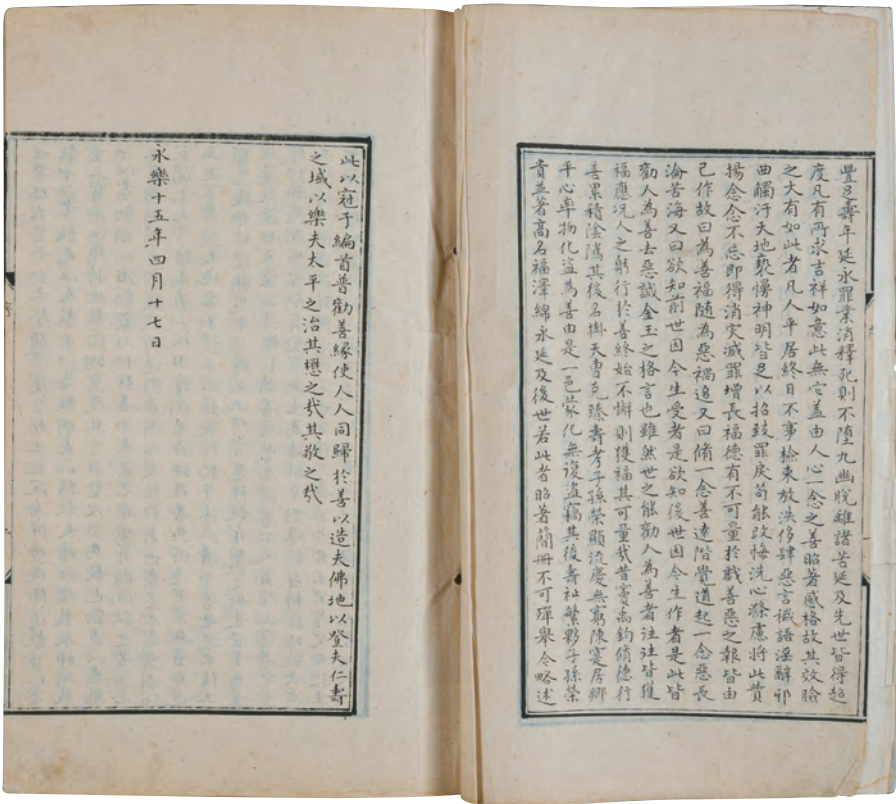 豐足壽年延永罪業消釋死則不墮九幽脫離諸苦延及先世皆得超
度凡有所求吉祥如意此無它蓋由人心一念之善昭著感格故其效驗
之大有如此者凡人平居終日不事檢束放泆侈肆惡言穢語淫辭邪
曲觸汙天地褻慢神明皆足以招致罪戾苟能改悔洗心滌慮將此贊
揚念念不忘即得消灾滅罪增長福德有不可量於戲善惡之報皆由
己作故曰為善福隨為惡禍追又曰脩一念善遠階覺道起一念惡長
淪苦海又曰欲知前世因今生受者是欲知後世因今生作者是此皆
勸人為善去惡誠金玉之格言也雖然世之能勸人為善者往往皆獲
福應况人之躬行於善終始不懈則獲福其可量哉昔竇禹鈞脩德行
善累積陰隲其後名掛天曹克臻壽考子孫榮顯流慶無窮陳寔居鄉
平心率物化盜為善由是一邑蒙化無復盜竊其後壽祉繁夥子孫榮
貴並著髙名福澤綿永延及後世若此者昭著簡冊不可殫舉今略述
此以冠于編首普勸善緣使人人同歸於善以造夫佛地以登夫仁壽
之域以樂夫太平之治其懋之哉其敬之哉
永樂十五年四月十七日